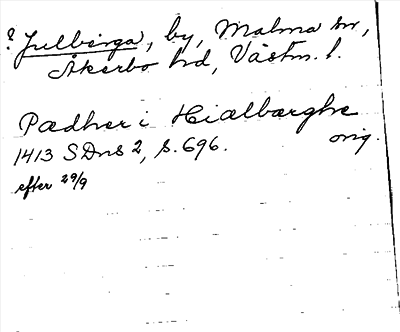 ? Julberga, by, Malma sn,
Åkerbo hd, Västm. l.
Pædher i Hiælbærghe
1413 SDns 2, s. 696. orig.
efter 29/9